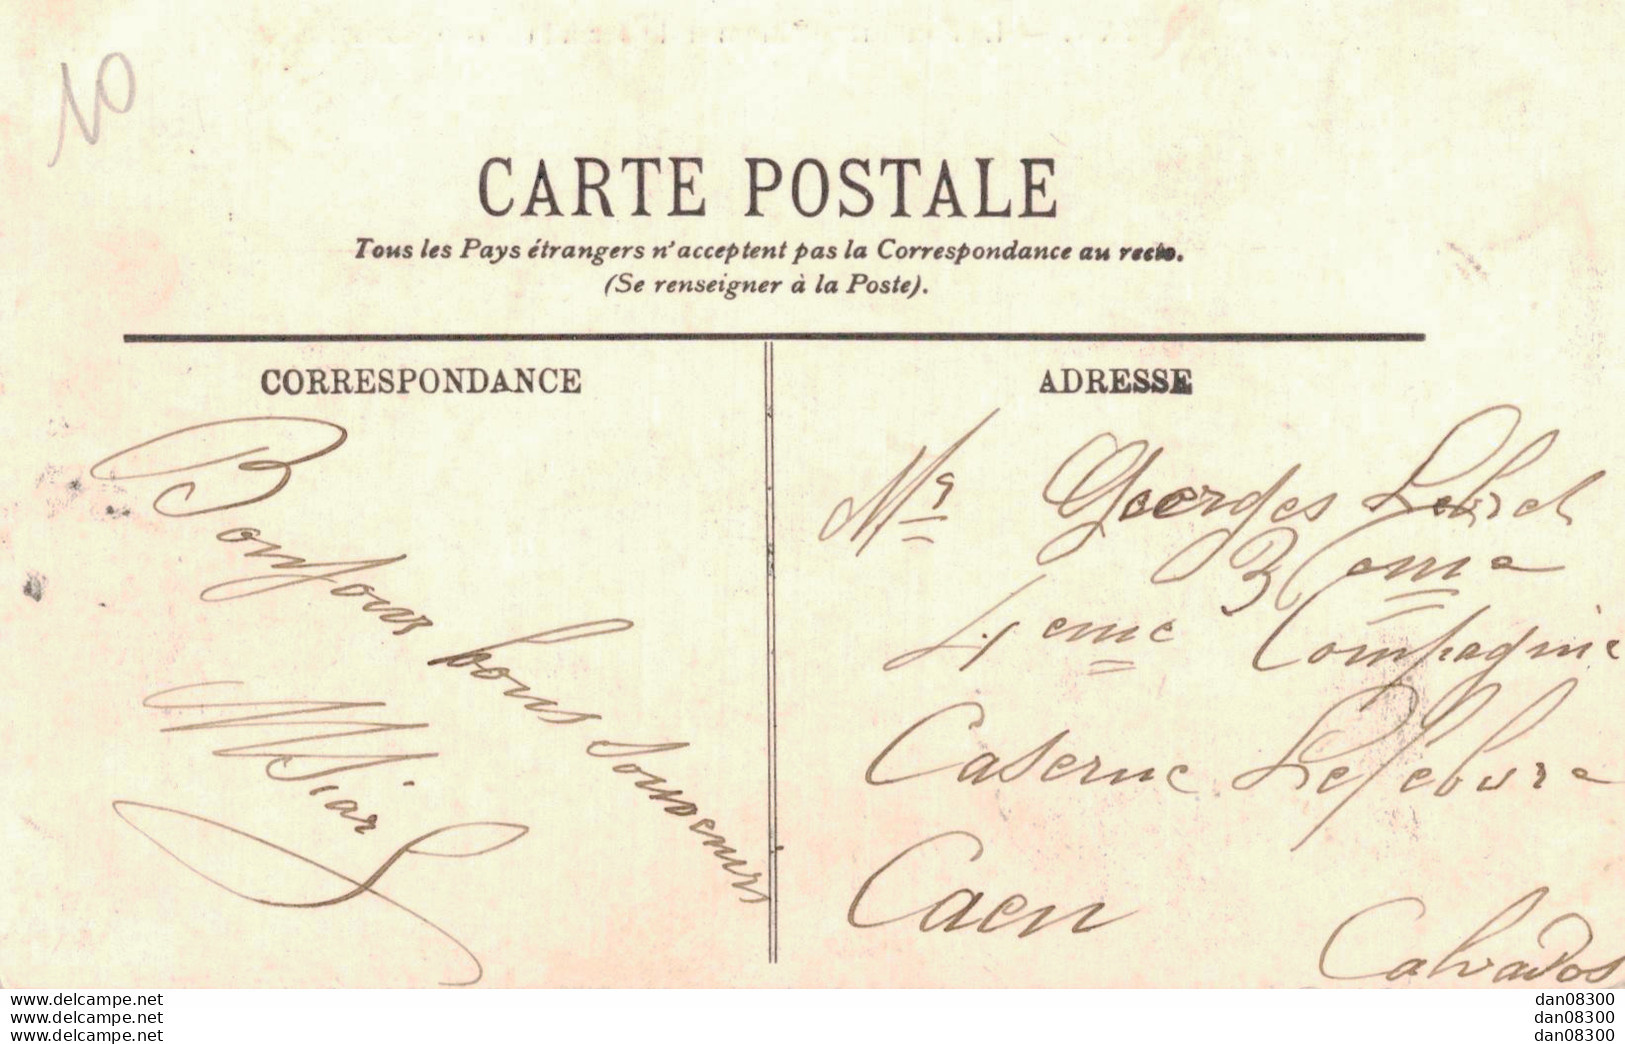 10
CARTE POSTALE
Tous les Pays étrangers n'acceptent pas la Correspondance au recto.
(Se renseigner à la Poste).
CORRESPONDANCE
Bonjour
bons souvenirs
ADRESSE
Mr Georges Lebret
3 eme
4eme Compagnie
Caserne Lefebvre
Caen
Calvados
www.delcampe.net
www.delcampe.net
www.delcampe.net
dan08300
dan08300
dan08300